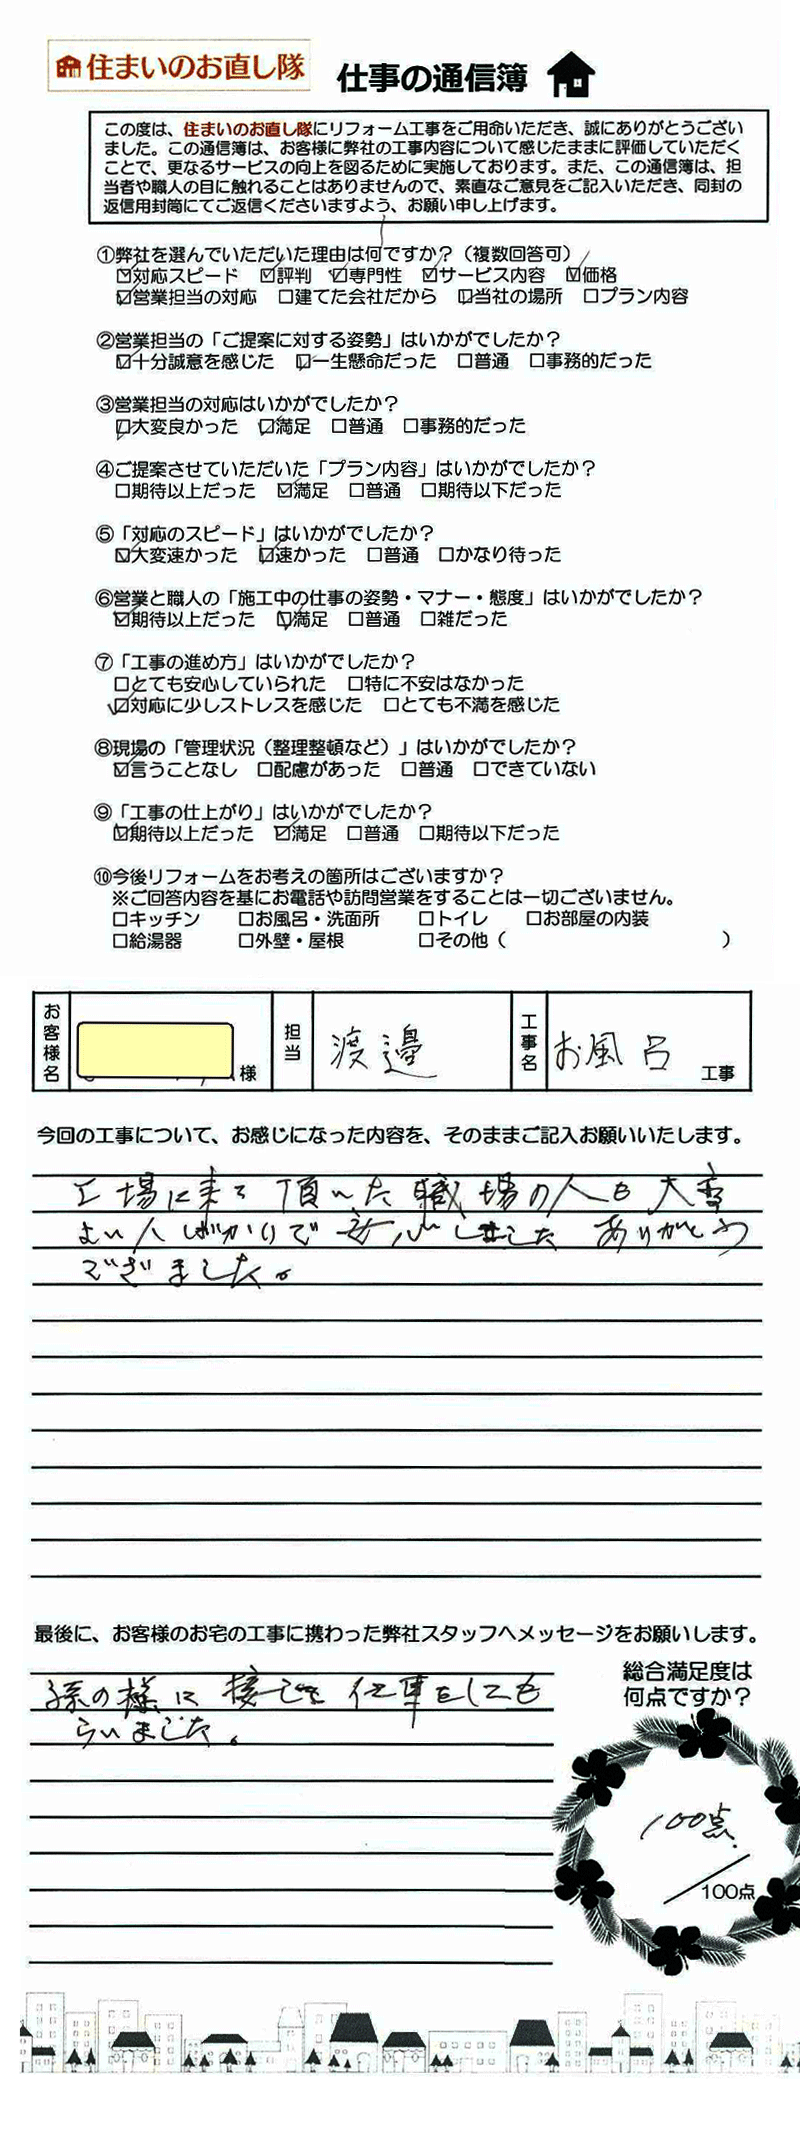 住まいのお直し隊 仕事の通信簿
この度は、住まいのお直し隊にリフォーム工事をご用命いただき、誠にありがとうござい
ました。この通信簿は、お客様に弊社の工事内容について感じたままに評価していただく
ことで、更なるサービスの向上を図るために実施しております。また、この通信簿は、担
当者や職人の目に触れることはありませんので、素直なご意見をご記入いただき、同封の
返信用封筒にてご返信くださいますよう、お願い申し上げます。
①弊社を選んでいただいた理由は何ですか？（複数回答可）
☑対応スピード ☑評判 ☑専門性 ☑サービス内容 ☑価格
☑営業担当の対応 □建てた会社だから ☑当社の場所 □プラン内容
②営業担当の「ご提案に対する姿勢」はいかがでしたか？
☑十分誠意を感じた ☑一生懸命だった □普通 □事務的だった
③営業担当の対応はいかがでしたか？
☑大変良かった ☑満足 □普通 □事務的だった
④ご提案させていただいた「プラン内容」はいかがでしたか？
□期待以上だった ☑満足 □普通 □期待以下だった
⑤「対応のスピード」はいかがでしたか？
☑大変速かった ☑速かった □普通 □かなり待った
⑥営業と職人の「施工中の仕事の姿勢・マナー・態度」はいかがでしたか？
☑期待以上だった ☑満足 □普通 □雑だった
⑦「工事の進め方」はいかがでしたか？
□とても安心していられた □特に不安はなかった
☑対応に少しストレスを感じた □とても不満を感じた
⑧現場の「管理状況（整理整頓など）」はいかがでしたか？
☑言うことなし □配慮があった □普通 □できていない
⑨「工事の仕上がり」はいかがでしたか？
☑期待以上だった ☑満足 □普通 □期待以下だった
⑩今後リフォームをお考えの箇所はございますか？
※ご回答内容を基にお電話や訪問営業をすることは一切ございません。
□キッチン □お風呂・洗面所 □トイレ □お部屋の内装
□給湯器 □外壁・屋根 □その他（ ）
お客様名 様 担当 渡邉 工事名 お風呂 工事
今回の工事について、お感じになった内容を、そのままご記入お願いいたします。
工場に来て頂いた職場の人も大変
よい人ばかりで安心しました ありがとう
でざました。
最後に、お客様のお宅の工事に携わった弊社スタッフへメッセージをお願いします。
孫の様に接しを仕事をしても
らいました。
総合満足度は
何点ですか？
100点
100点